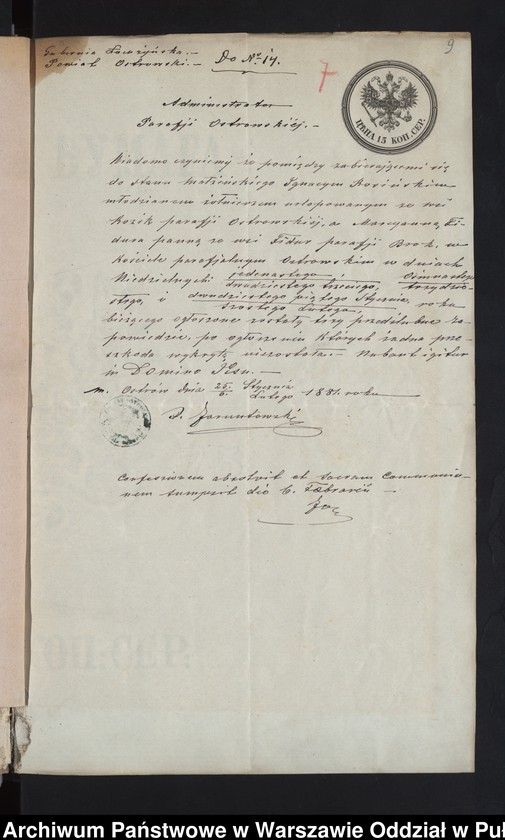 Gubernia Łomżyńska.—
Powiat Ostrowski.—
Do Nr. 14.
7
9
ЦѢНА 15 КОП. СЕР.
Administrator
Parafji Ostrowskiéj.—
Wiadomo czynimy że pomiędzy zabierającemi się
do stanu małżeńskiego Ignacym Kosińskim
młodzianem żołnierzem uolopowanym ze wsi
Kozik parafji Ostrowskiéj, a Maryanną Fi-
dura panną ze wsi Fidur parafji Brok, w
Kościele parafjalnym Ostrowskim w dniach
Niedzielnych jedenastego, ósmnastego
dwudziestego trzeciego, trzydzie-
stego, i dwudziestego piątego Stycznia, roku
szóstego Lutego,
bieżącego ogłoszone zostały trzy przedślubne za-
powiedzie, po ogłoszeniu których żadna prze-
szkoda wykrytą niezostała.— Nubant igitur
in Domino Jesu.—
m. Ostrów dnia 25/6 Stycznia/Lutego 1881 roku
Confessionem absolvit et Sacram Communio-
nem sumpsit die 6. Februarii —
Archiwum Państwowe w Warszawie Oddział w Puł